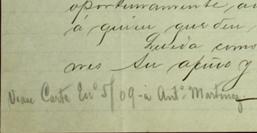 oportunamente, a
á quien que den
Quedo como
mes Su afmo y
Vease Carta En° 5/09 - á Ant° Martinez